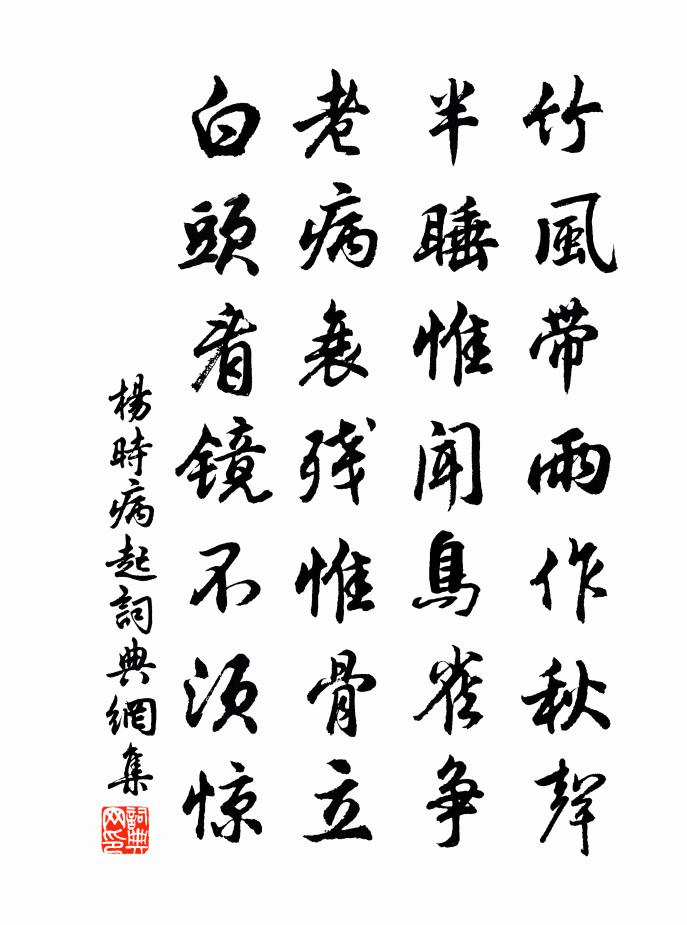 竹風帶雨作秋聲
半睡惟聞鳥雀爭
老病衰残惟骨立
白頭看镜不須惊
楊時病起詞典網集
詞典网印